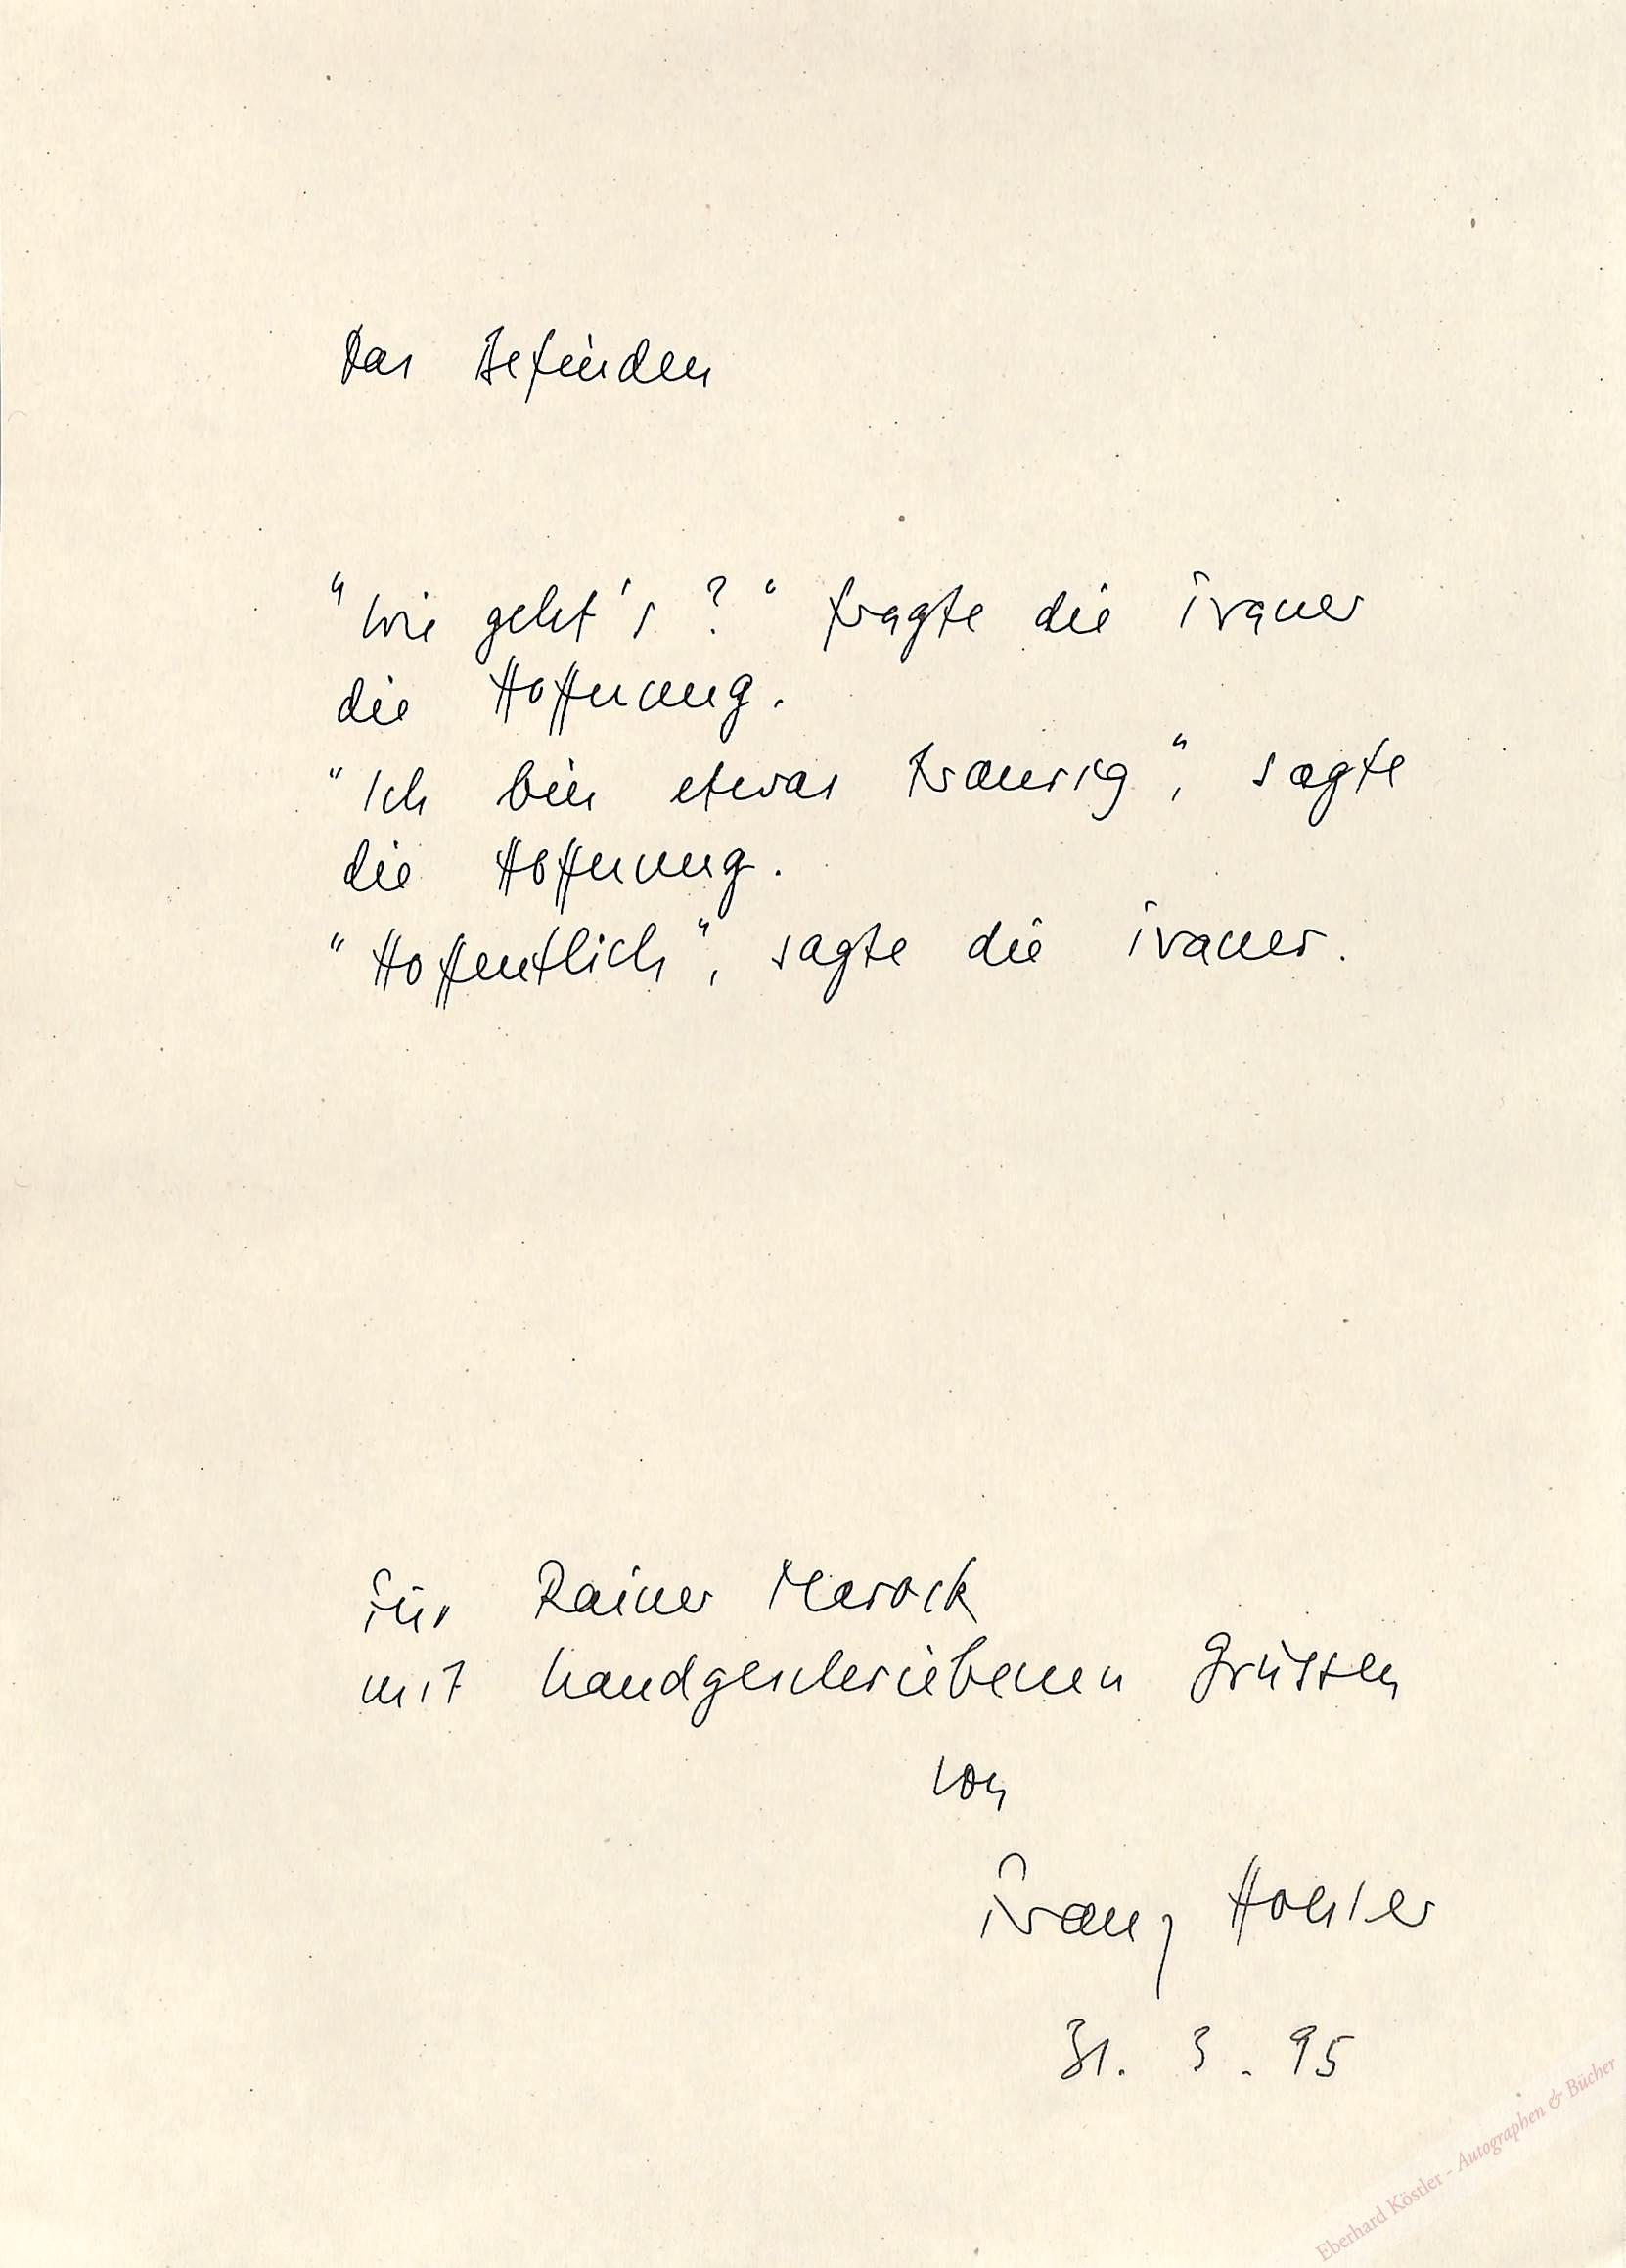 Das Befinden
"Wie geht's?" fragte die Trauer
die Hoffnung.
"Ich bin etwas traurig", sagte
die Hoffnung.
"Hoffentlich", sagte die Trauer.
Für Rainer Marock
mit handgeschriebenen Grüssen
von
Franz Hohler
31. 3. 95
Eberhard Köstler - Autographen & Bücher